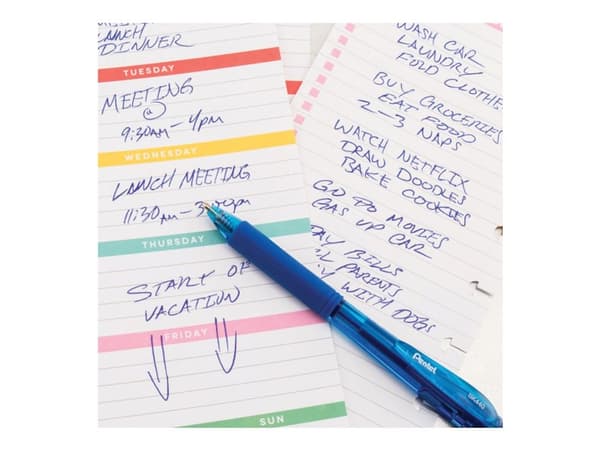 LUNCH
DINNER
TUESDAY
MEETING
@
9:30AM – 4PM
WEDNESDAY
LUNCH MEETING
11:30AM –
THURSDAY
START OF
VACATION
FRIDAY
SUN
WASH CAR
LAUNDRY
FOLD CLOTHES
BUY GROCERIES
EAT FOOD
2–3 NAPS
WATCH NETFLIX
DRAW DOODLES
BAKE COOKIES
GO TO MOVIES
GAS UP CAR
BILLS
PARENTS
WITH DOGS
Pentel
BK440